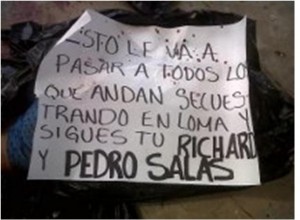 ESTO LE VA A
PASAR A TODOS LO
QUE ANDAN SECUES
TRANDO EN LOMA Y
SIGUES TU RICHARD
Y PEDRO SALAS